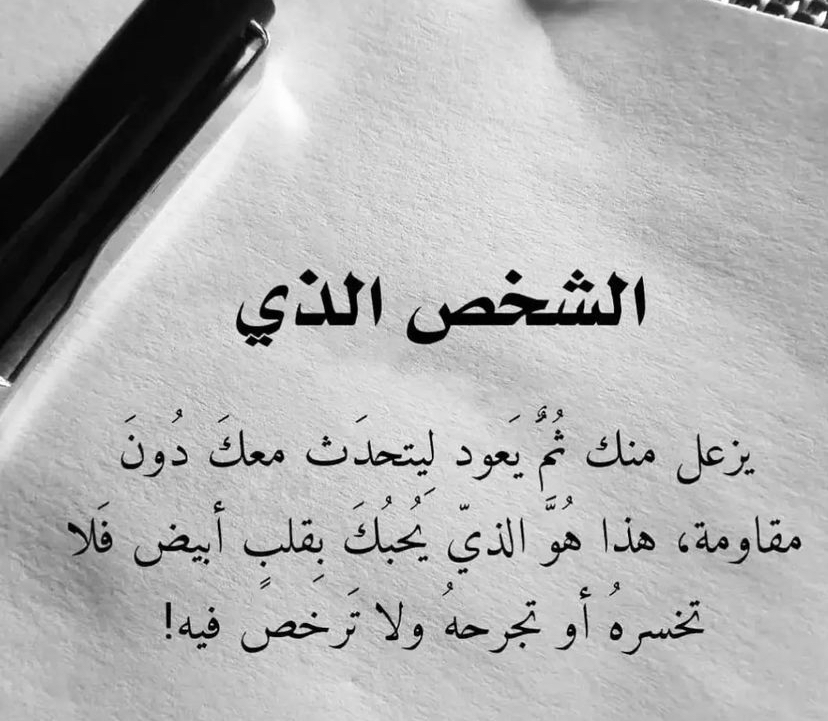 الشخص الذي
يزعل منك ثُمٌ يَعود لِيتحدَث معكَ دُونَ
مقاومة، هذا هُوَّ الذيّ يُحبُكَ بِقلبٍ أبيض فَلا
تخسرهُ أو تجرحهُ ولا تَرخص فيه!